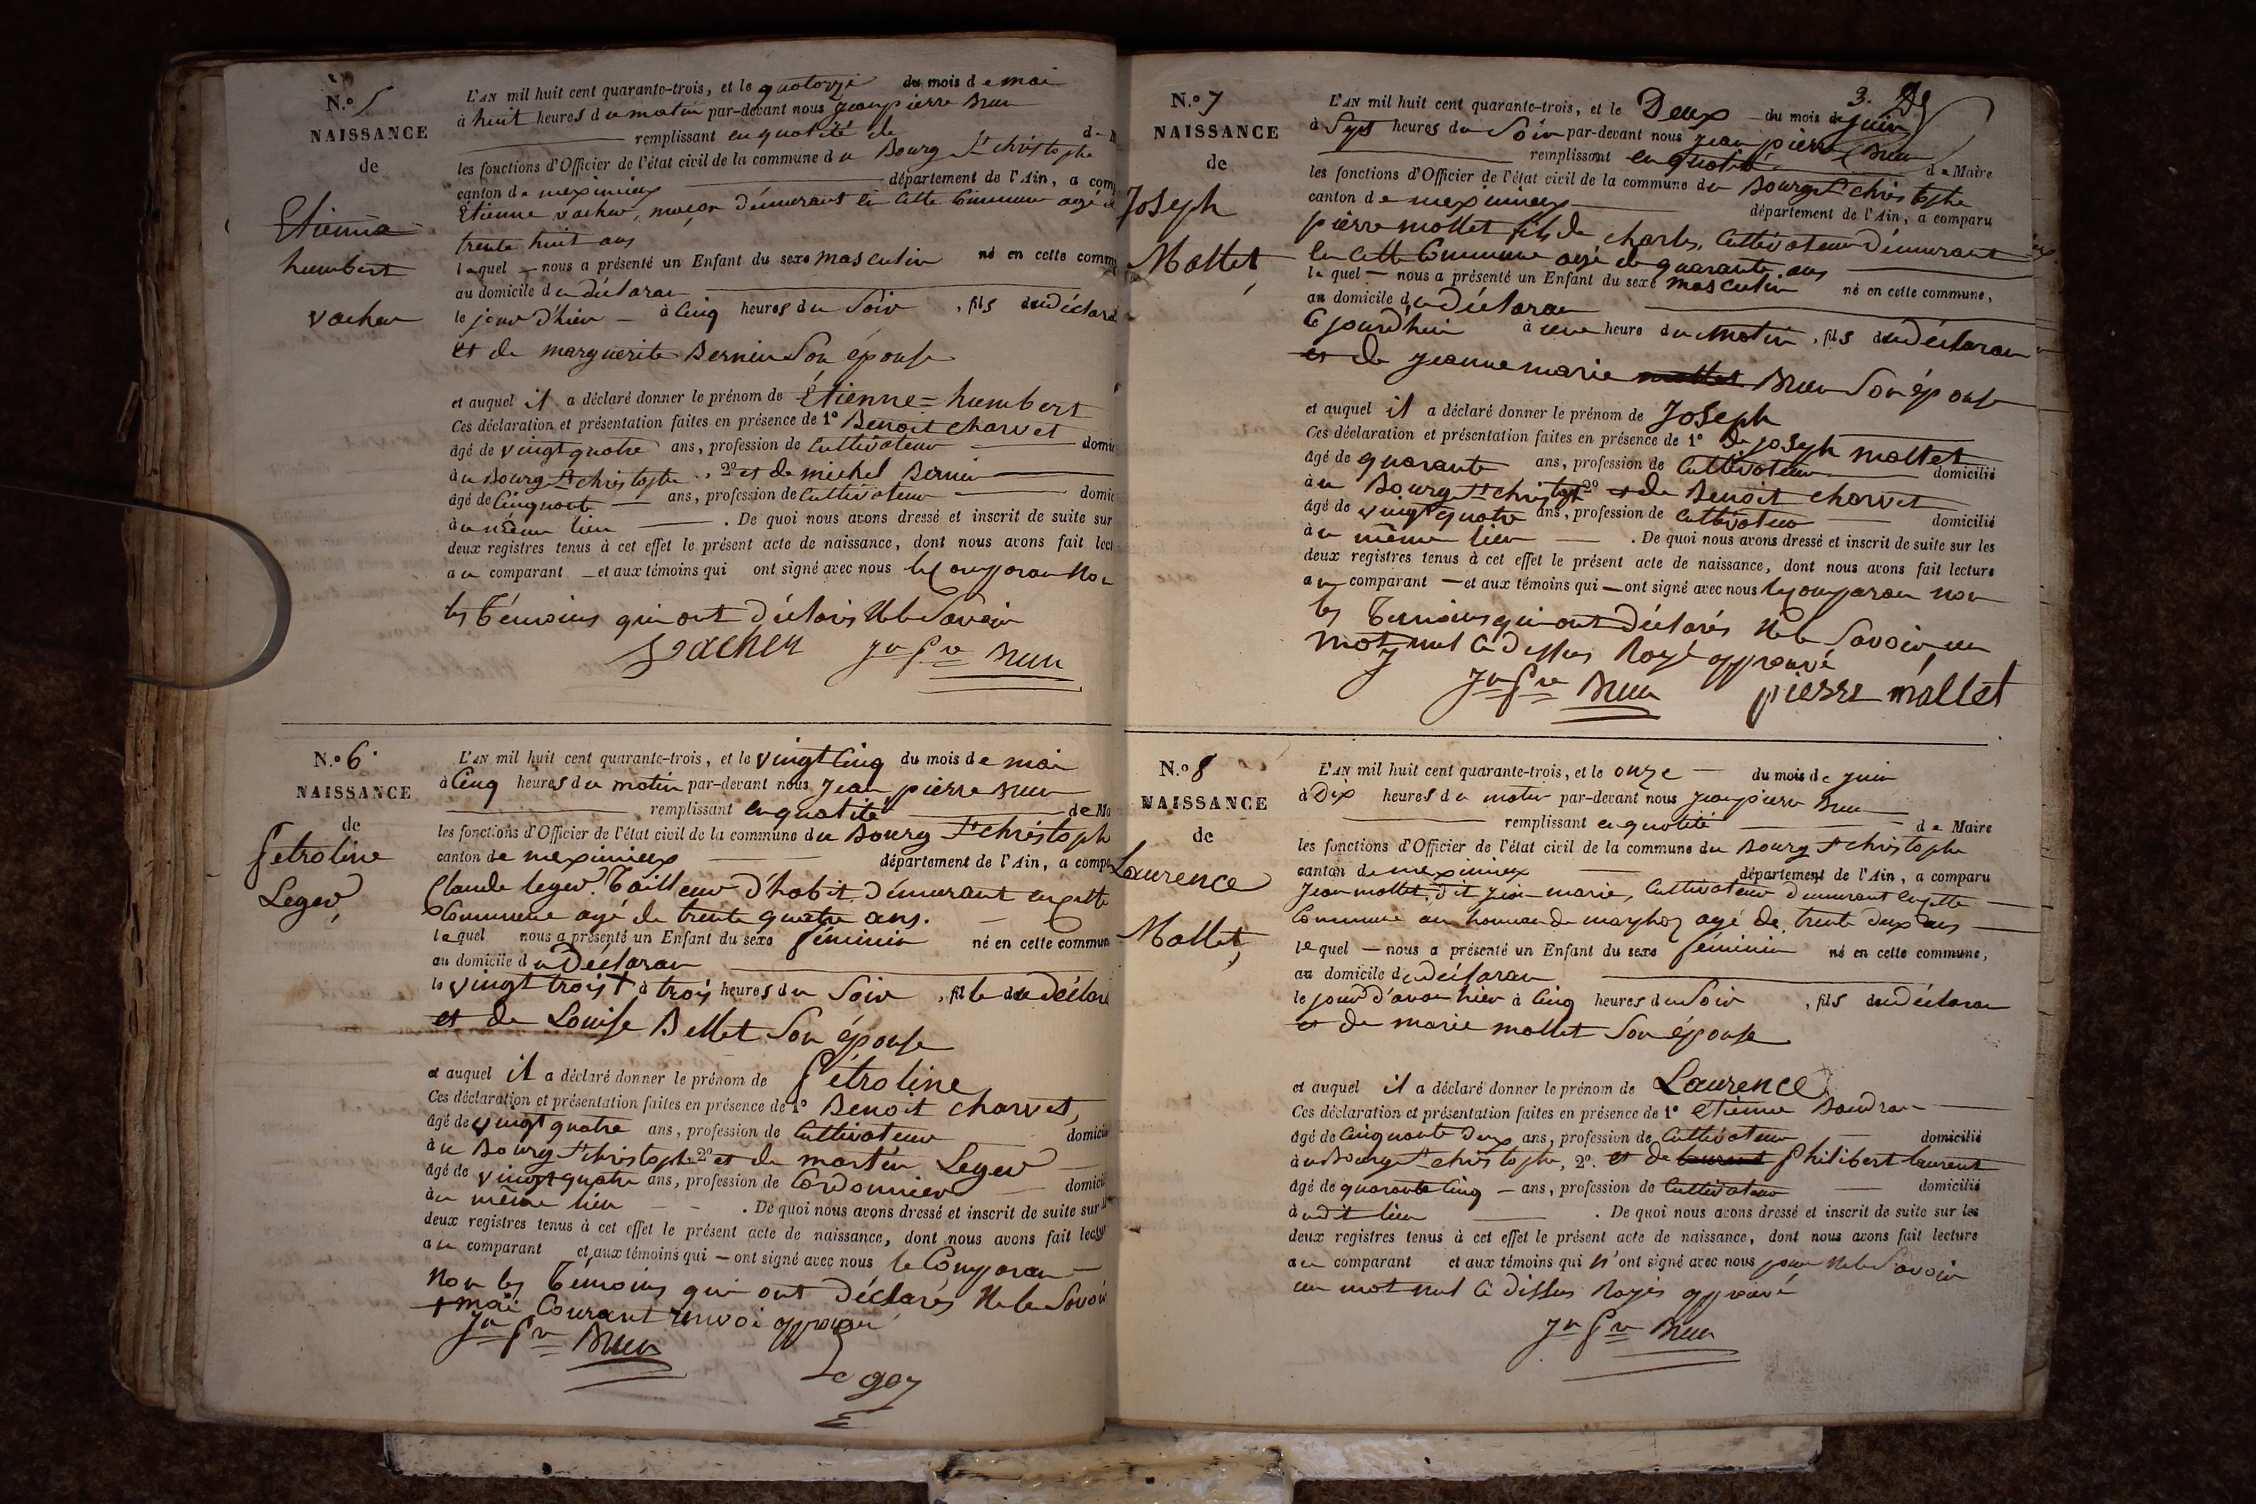 N.° 5
NAISSANCE
de
Etienne
humbert
vacher
L'AN mil huit cent quarante-trois, et le quatorze du mois de mai
à huit heures du matin par-devant nous jean pierre Brun
remplissant en qualité de
les fonctions d'Officier de l'état civil de la commune du Bourg St christophe
canton de meximieux département de l'Ain, a com
Etienne vacher, maçon démeurant en cette Commune agé de
trente huit ans
lequel nous a présenté un Enfant du sexe masculin né en cette comm
au domicile du déclaran
le jour d'hier à Cinq heures du Soir, fils du déclara
et de marguerite Bernin Son épouse
et auquel il a déclaré donner le prénom de Étienne = humbert
Ces déclaration et présentation faites en présence de 1° Benoit charvet
âgé de vingt quatre ans, profession de Cultivateur domic
à u Bourg St christophe, 2° et de michel Bernin
âgé de Cinquante ans, profession de Cultivateur domic
à u même lieu. De quoi nous avons dressé et inscrit de suite sur
deux registres tenus à cet effet le présent acte de naissance, dont nous avons fait lect
au comparant et aux témoins qui ont signé avec nous le Comparan Non
les Témoins qui ont déclarés Ne le Savoir
Vacher Jn Pre Brun
N.° 6
NAISSANCE
de
Pétroline
Leger
L'AN mil huit cent quarante-trois, et le vingt Cinq du mois de mai
à Cinq heures du matin par-devant nous Jean pierre Brun
remplissant en qualité de Ma
les fonctions d'Officier de l'état civil de la commune du Bourg St christoph
canton de meximieux département de l'Ain, a compa
Claude leger. Tailleur d'habit démeurant en cette
Commune agé de trente quatre ans.
lequel nous a présenté un Enfant du sexe féminin né en cette commun
au domicile du Déclaran
le vingt trois + à trois heures du Soir, fille du déclara
et de Louise Bellet Son épouse
et auquel il a déclaré donner le prénom de Pétroline
Ces déclaration et présentation faites en présence de 1° Benoit charvet,
âgé de vingt quatre ans, profession de Cultivateur domicili
à u Bourg St christophe 2° et de martin Leger
âgé de vingt quatre ans, profession de Cordonnier domicili
à u même lieu. De quoi nous avons dressé et inscrit de suite sur
deux registres tenus à cet effet le présent acte de naissance, dont nous avons fait lectu
au comparant et aux témoins qui ont signé avec nous le Comparan
Non les Témoins qui ont déclarés Ne le Savoir
+ mai Courant renvoi approuvé
Jn Pre Brun
Leger
3.
N.° 7
NAISSANCE
de
Joseph
Mollet,
L'AN mil huit cent quarante-trois, et le Deux du mois de juin
à Sept heures du Soir par-devant nous jean pierre Brun
remplissant en qualité de Maire
les fonctions d'Officier de l'état civil de la commune du Bourg St christophe
canton de meximieux département de l'Ain, a comparu
pierre mollet fils de charles, Cultivateur démeurant
en cette Commune agé de quarante ans
lequel nous a présenté un Enfant du sexe masculin né en cette commune,
au domicile du déclaran
Ce jourd'hui à une heure du matin, fils du déclaran
et de jeanne marie mollet Brun Son épouse
et auquel il a déclaré donner le prénom de Joseph
Ces déclaration et présentation faites en présence de 1° de joseph mollet
âgé de quarante ans, profession de Cultivateur domicilié
à u Bourg St christophe 2° et de Benoit charvet
âgé de vingt quatre ans, profession de Cultivateur domicilié
à u même lieu. De quoi nous avons dressé et inscrit de suite sur les
deux registres tenus à cet effet le présent acte de naissance, dont nous avons fait lecture
au comparant et aux témoins qui ont signé avec nous le Comparan non
les Temoins qui ont déclarés Ne le Savoir, un
mot nul Ci dessus Rayé approuvé
Jn Pre Brun pierre mollet
N.° 8
NAISSANCE
de
Laurence
Mollet,
L'AN mil huit cent quarante-trois, et le onze du mois de juin
à Dix heures du matin par-devant nous jean pierre Brun
remplissant en qualité de Maire
les fonctions d'Officier de l'état civil de la commune du Bourg St christophe
canton de meximieux département de l'Ain, a comparu
Jean mollet, dit jean-marie, Cultivateur démeurant en cette
Commune au hameau de marphoz agé de trente deux ans
lequel nous a présenté un Enfant du sexe féminin né en cette commune,
au domicile du déclaran
le jour d'avan hier à Cinq heures du Soir, fils du déclaran
et de marie mollet Son épouse
et auquel il a déclaré donner le prénom de Laurence
Ces déclaration et présentation faites en présence de 1° etienne Baudran
âgé de Cinquante deux ans, profession de Cultivateur domicilié
à u Bourg St christophe, 2°. et de laurent Philibert laurent
âgé de quarante Cinq ans, profession de Cultivateur domicilié
à u dit lieu. De quoi nous avons dressé et inscrit de suite sur les
deux registres tenus à cet effet le présent acte de naissance, dont nous avons fait lecture
au comparant et aux témoins qui n'ont signé avec nous pour Ne le Savoir
un mot nul Ci dessus Rayés approuvé
Jn Pre Brun